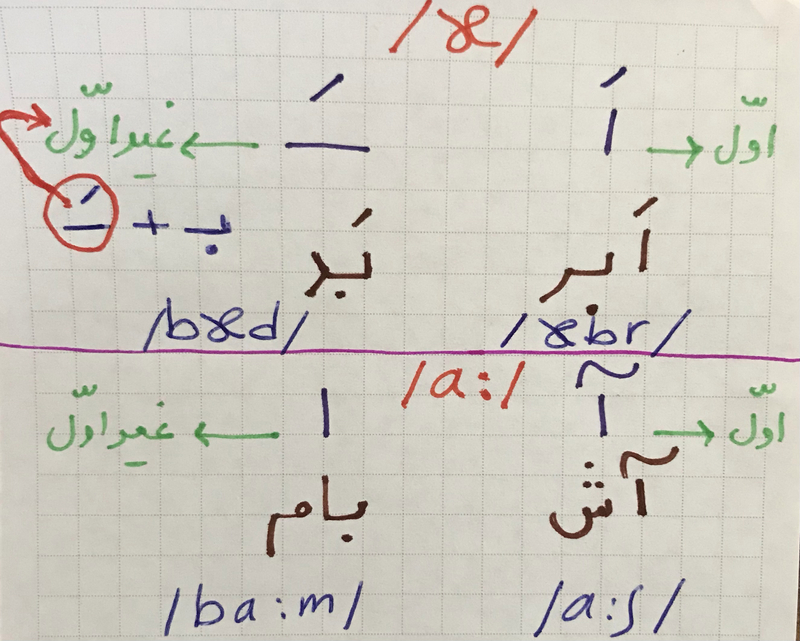 /æ/
اوّل → اَ  ـَ ← غیراوّل
اَبر  بَد  بـ + ـَ
/æbr/  /bæd/
/a:/
اوّل → آ  ا ← غیراوّل
آش  بام
/a:ʃ/  /ba:m/